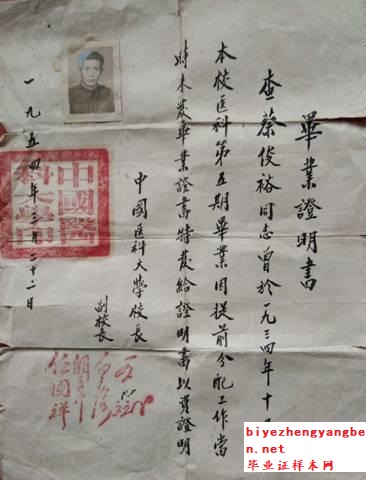 畢業證明書
查蔡俊裕同志曾於一九三四年十
本校医科第五期畢業因提前分配工作當
時未发畢業證書特发給證明書以資證明
中國医科大學校長
副校長
任國祥
一九五四年三月二十二日
中國醫科大學印
biyezhengyangben.net
毕业证样本网